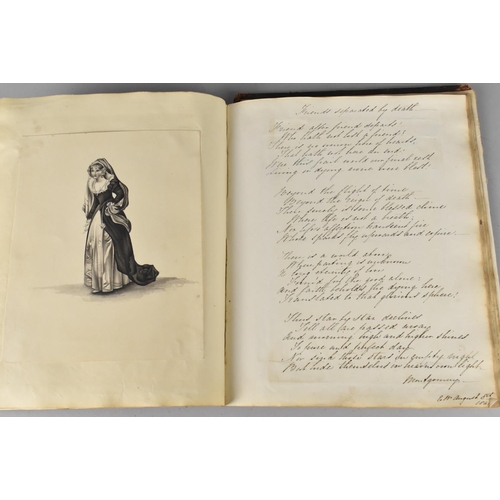 Friends separated by death
Friend after friend departs
Who hath not lost a friend?
There is no union here of hearts,
That hath not here an end
Were this frail world our final rest
Living or dying none were blest.
Beyond the flight of time
Beyond the reign of death
There surely is some blessed clime
Where life is not a breath;
Nor life's affection transient fire
Whose sparks fly upwards and expire.
There is a world above
Where parting is unknown
A long eternity of love
Form'd for the good alone;
And faith beholds the dying here
Translated to that glorious sphere!
Thus star by star declines
Till all are passed away
And morning high and higher shines
To pure and perfect day
Nor sink those stars in empty night
But hide themselves in heaven's own light.
Montgomery.
August